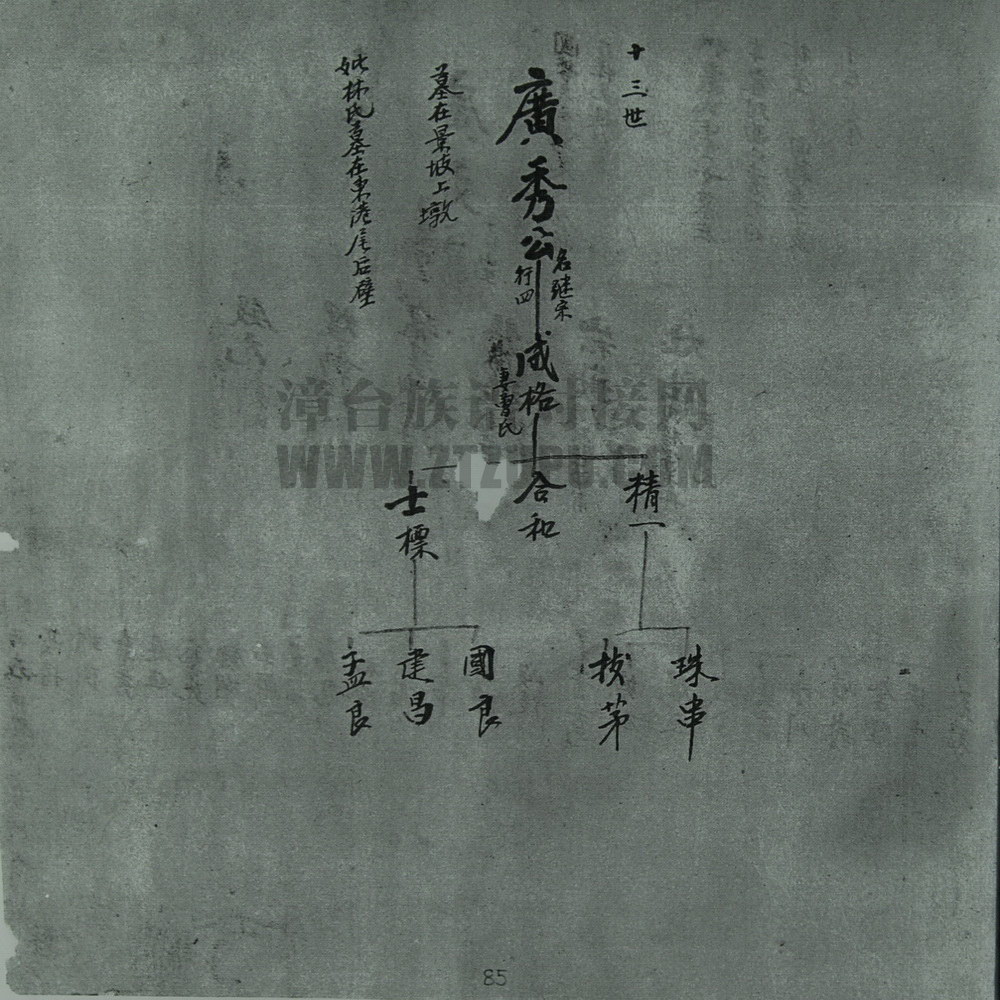 十三世
廣秀公
名継宗
行四
墓在景坡上墩
妣林氏墓在東港尾后壁
咸格
妻曾氏
精一
合和
士標
珠串
拔茅
國良
建昌
孟良
漳台族谱对接网
WWW.ZTZUPU.COM
85